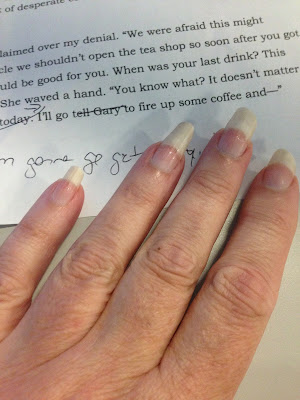 of desperate
laimed over my denial. “We were afraid this might
cle we shouldn’t open the tea shop so soon after you got
uld be good for you. When was your last drink? This
She waved a hand. “You know what? It doesn’t matter
today. I’ll go tell Gary to fire up some coffee and—”
gonna go get